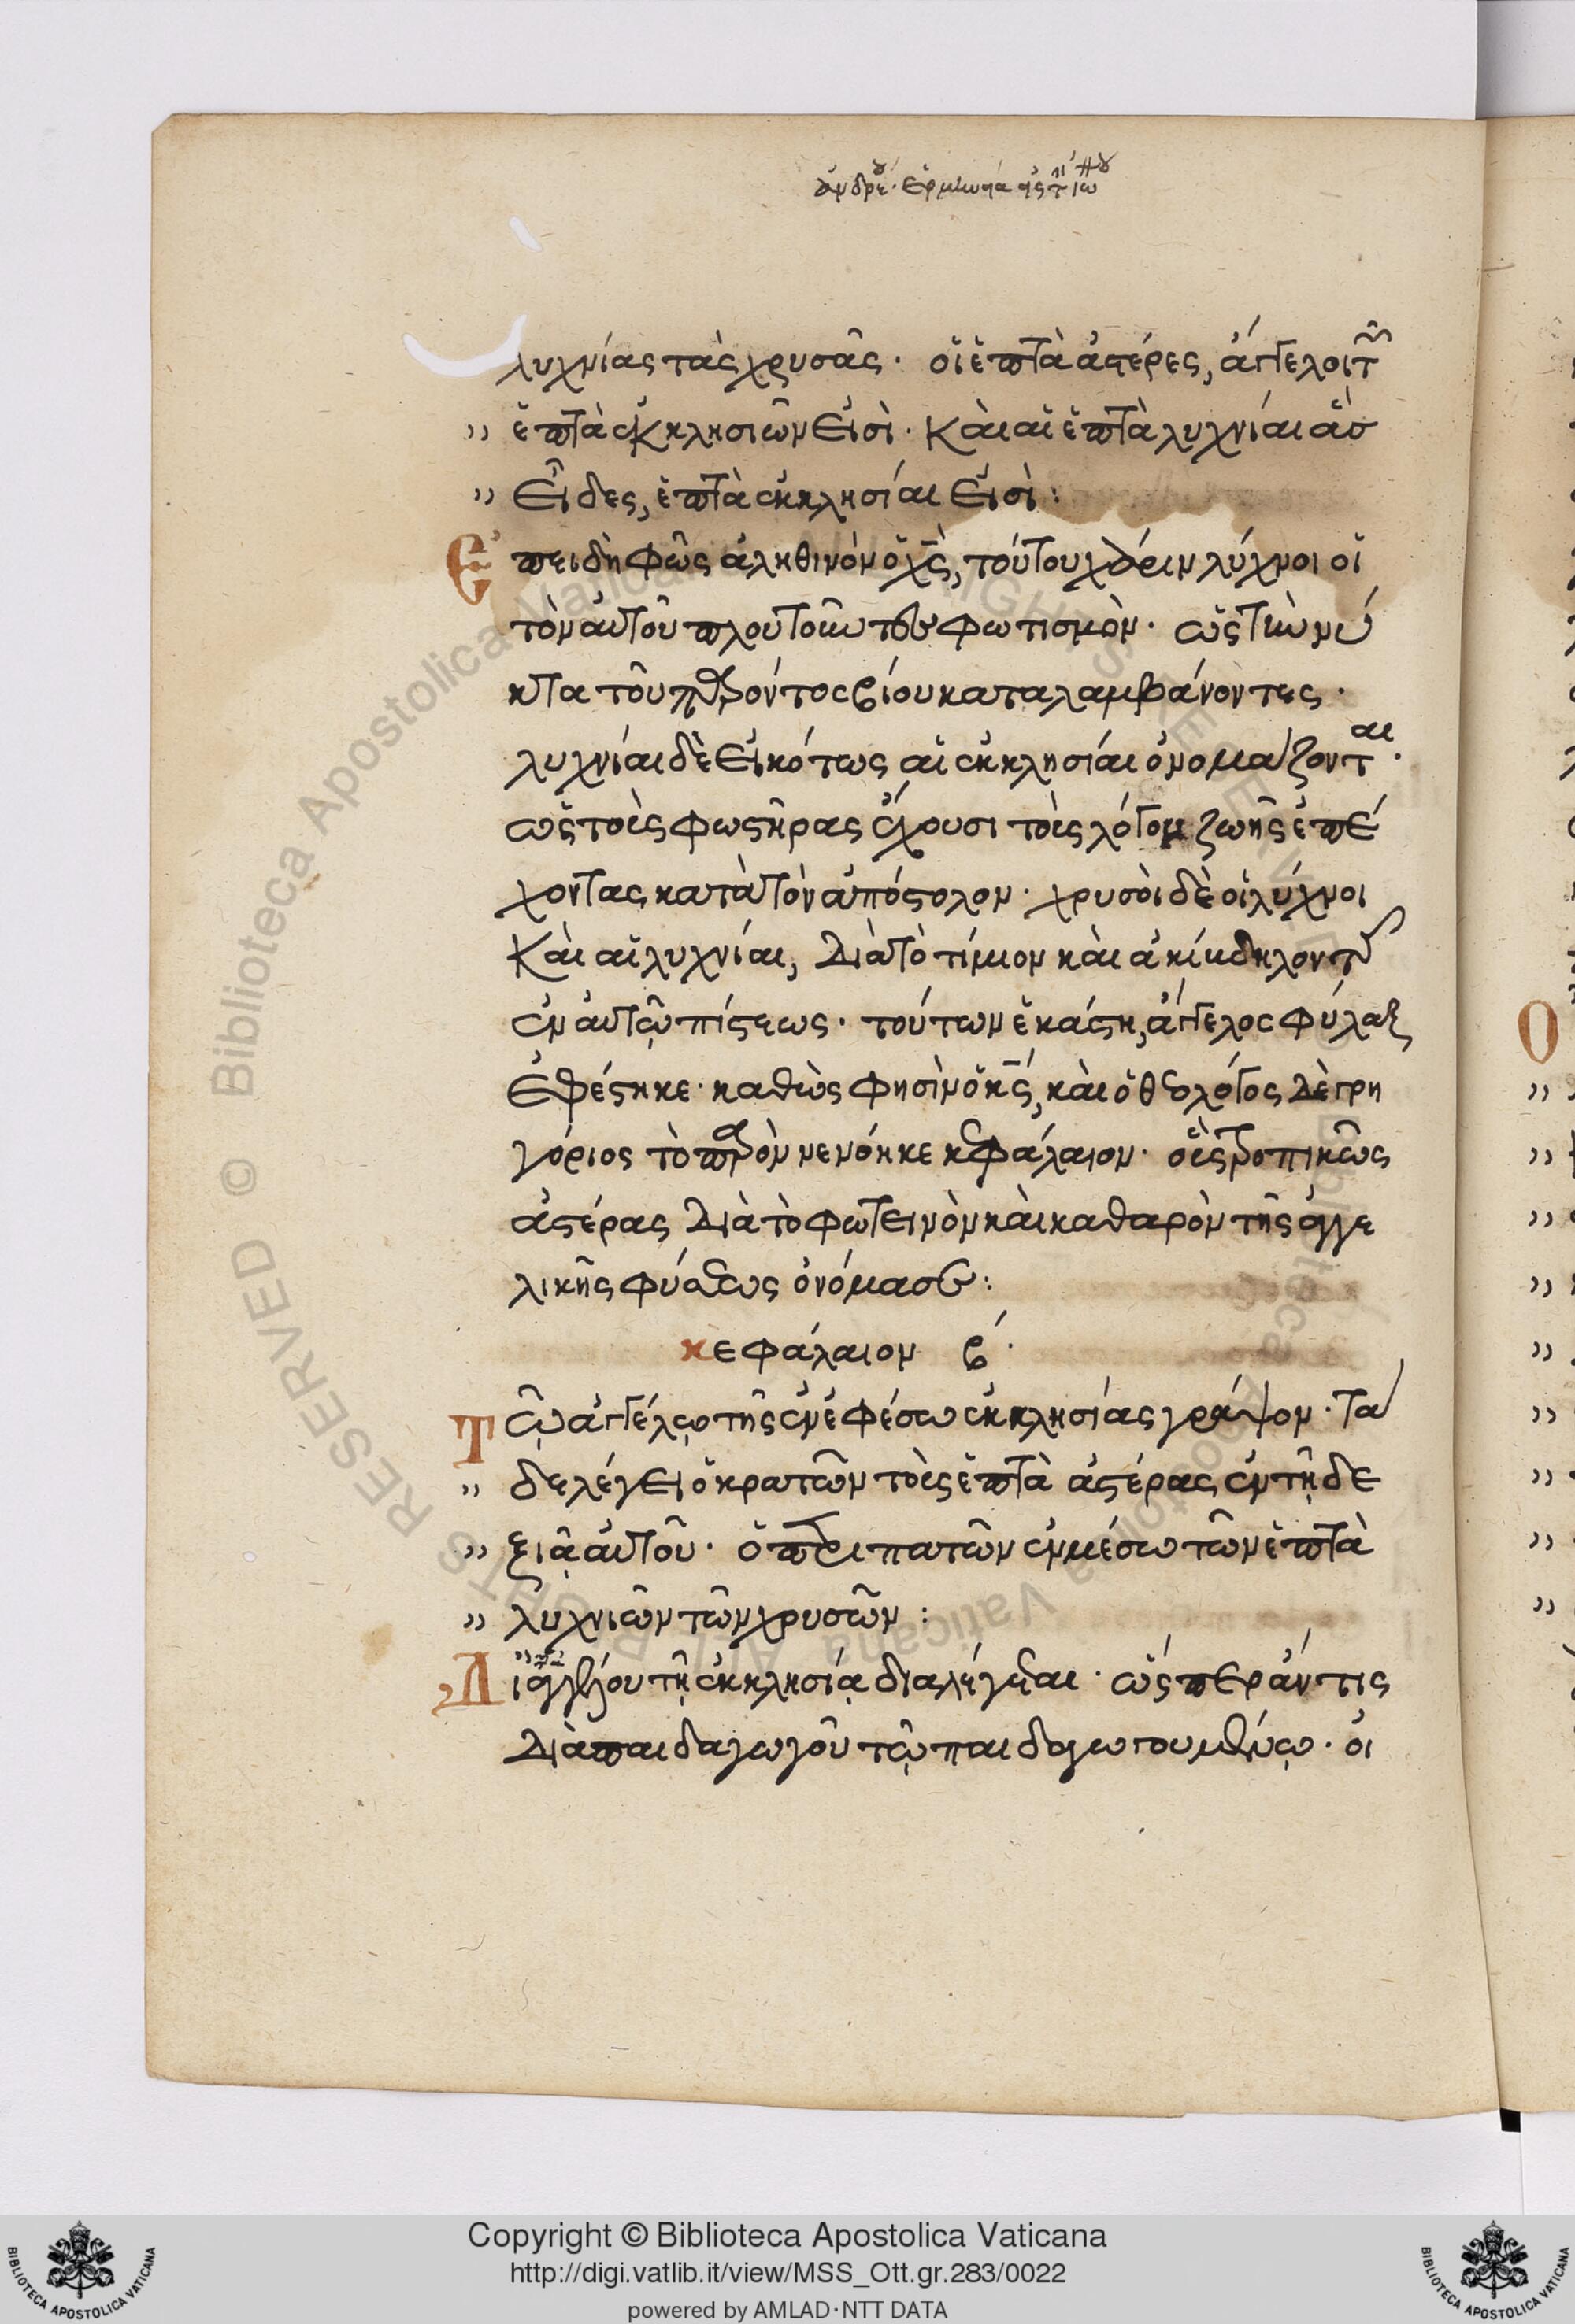 λυχνίας τὰς χρυσᾶς· οἱ ἑπτὰ ἀστέρες, ἄγγελοι τῶν
" ἑπτὰ ἐκκλησιῶν εἰσὶ· Καὶ αἱ ἑπτὰ λυχνίαι ἃσ
" εἶδες, ἑπτὰ ἐκκλησίαι εἰσὶ:
Ἐπειδὴ φῶς ἀληθινὸν ὁ χς, τούτου χάριν λύχνοι οἱ
τὸν αὐτοῦ πλουτοῦντες φωτισμὸν· ὡς τὴν νύ
κτα τοῦ παρόντος βίου καταλαμβάνοντες·
λυχνίαι δὲ εἰκότως αἱ ἐκκλησίαι ὀνομάζονται·
ὡς τοὺς φωστῆρας ἔχουσι τοὺς λόγον ζωῆς ἐπέ
χοντας κατὰ τὸν ἀπόστολον· χρυσοὶ δὲ οἱ λύχνοι
Καὶ αἱ λυχνίαι, Διὰ τὸ τίμιον καὶ ἀκίβδηλον τῆς
ἐν αὐτῷ πίστεως· τούτων ἑκάστη, ἄγγελος φύλαξ
ἐφέστηκε· καθὼς φησὶν ὁ κς, καὶ ὁ θεολόγος δὲ γρη
γόριος τὸ παρὸν νενόηκε κεφάλαιον· οὓς τροπικῶς
ἀστέρας Διὰ τὸ φωτεινὸν καὶ καθαρὸν τῆς ἀγγε
λικῆς φύσεως ὀνόμασε:
κεφάλαιον β´·
Τῷ ἀγγέλῳ τῆς ἐν ἐφέσω ἐκκλησίας γράψον· Τά
" δε λέγει ὁ κρατῶν τοὺς ἑπτὰ ἀστέρας ἐν τῇ δε
" ξιᾷ αὐτοῦ· ὁ περιπατῶν ἐν μέσω τῶν ἑπτὰ
" λυχνιῶν τῶν χρυσῶν:
Δι ἀγγέλου τῇ ἐκκλησίᾳ διαλέγεται· ὥσπερ ἄν τις
Διὰ παιδαγωγοῦ τῷ παιδαγωγουμένῳ· οἱ
Copyright © Biblioteca Apostolica Vaticana
http://digi.vatlib.it/view/MSS_Ott.gr.283/0022
powered by AMLAD·NTT DATA